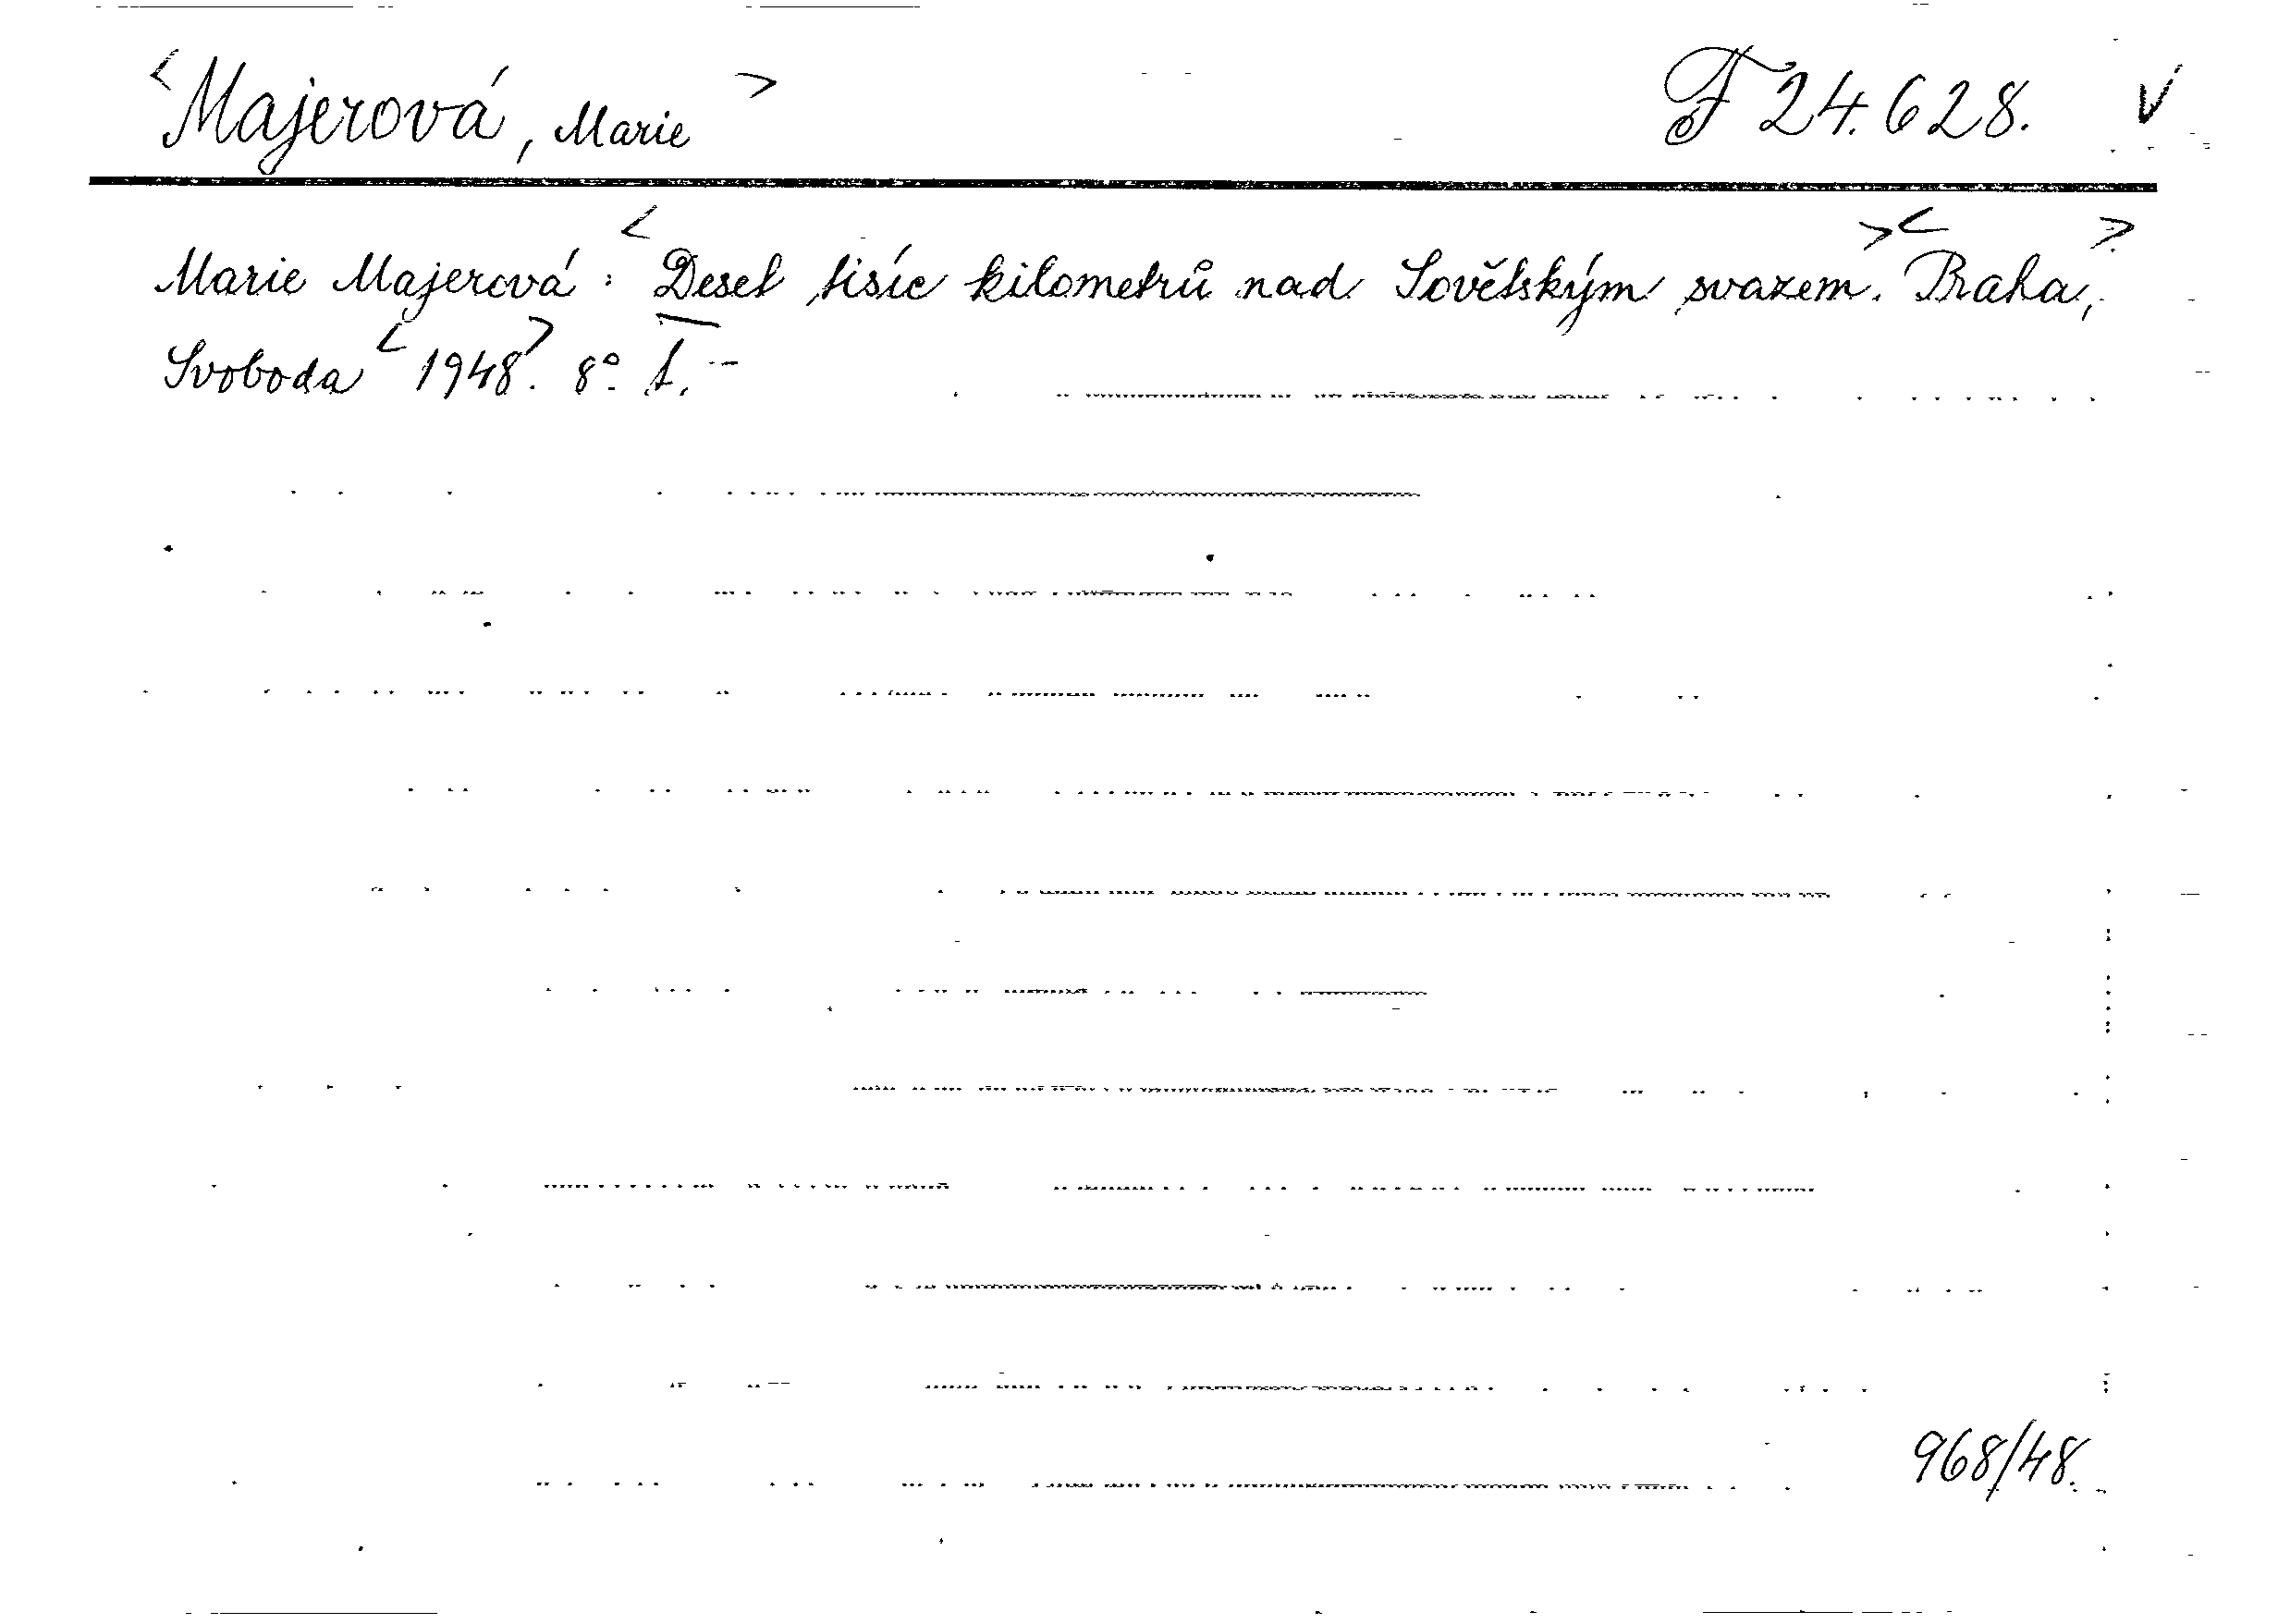 <Majerová, Marie> F 24.628. V
Marie Majerová: <Deset tisíc kilometrů nad Sovětským svazem.> <Praha,>
Svoboda <1948>. 8°.
968/48.